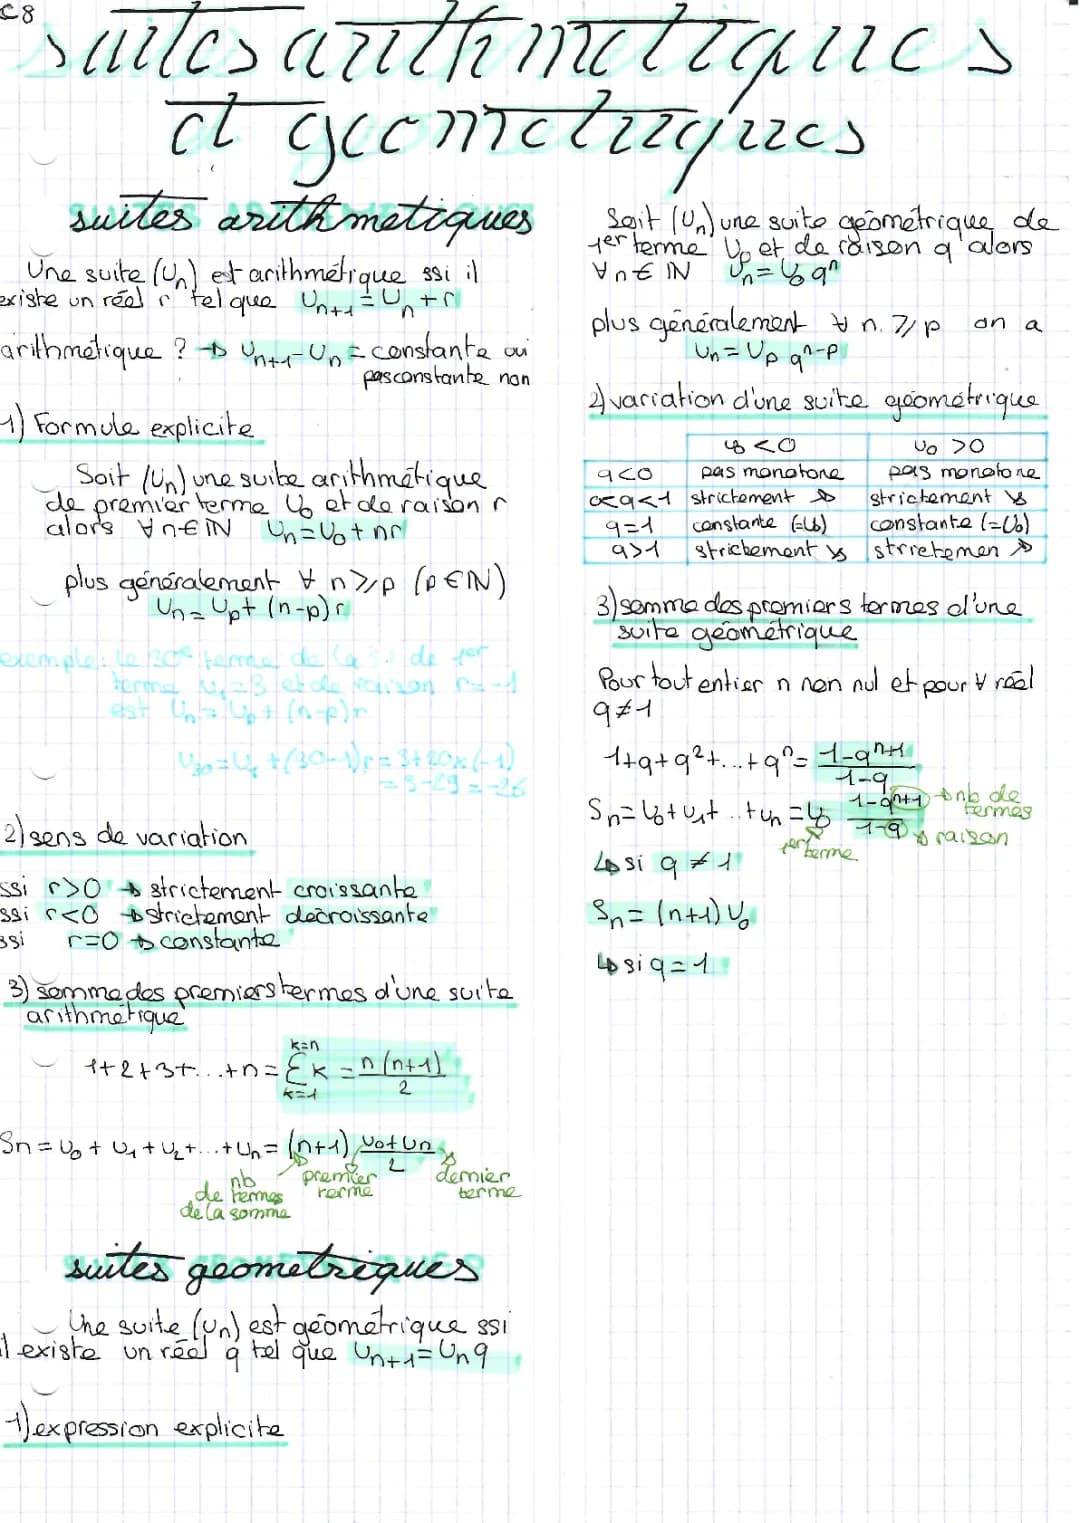 C8
suites arithmetiques
et geometriques
suites arithmetiques
Une suite (Un) est arithmétique ssi il
existe un réel r tel que Un+1 = Un + r
arithmétique ? → Un+1 - Un = constante oui
pas constante non
1) Formule explicite
Soit (Un) une suite arithmétique
de premier terme U0 et de raison r
alors ∀ n ∈ IN Un = U0 + nr
plus généralement ∀ n ⩾ p (p ∈ IN)
Un = Up + (n-p) r
exemple: le 30e terme de la s.a de 1er
terme U1 = 3 et de raison r = -1
est Un = Up + (n-p)r
U30 = U1 + (30-1)r = 3 + 29 x (-1)
= 3 - 29 = -26
2) sens de variation
ssi r > 0 → strictement croissante
ssi r < 0 → strictement decroissante
ssi r = 0 → constante
3) somme des premiers termes d'une suite
arithmétique
k=n
1 + 2 + 3 + ... + n = Σ k = n (n+1)
k=1 2
Sn = U0 + U1 + U2 + ... + Un = (n+1) U0 + Un
2
nb
de termes
de la somme
premier
terme
dernier
terme
suites geometriques
Une suite (Un) est géométrique ssi
il existe un réel q tel que Un+1 = Un q
1) expression explicite
Soit (Un) une suite géométrique de
1er terme U0 et de raison q alors
∀ n ∈ IN Un = U0 q^n
plus généralement ∀ n ⩾ p on a
Un = Up q^n-p
2) variation d'une suite géométrique
U0 < 0 U0 > 0
q < 0 pas monotone pas monotone
0 < q < 1 strictement ↗ strictement ↘
q = 1 constante (=U0) constante (=U0)
q > 1 strictement ↘ strictemen ↗
3) somme des premiers termes d'une
suite géométrique
Pour tout entier n non nul et pour ∀ réel
q ≠ 1
1 + q + q² + ... + q^n = 1 - q^n+1
1 - q
Sn = U0 + U1 + ... + Un = U0 1 - q^n+1 → nb de
termes
1 - q → raison
1er
terme
↳ si q ≠ 1
Sn = (n+1) U0
↳ si q = 1